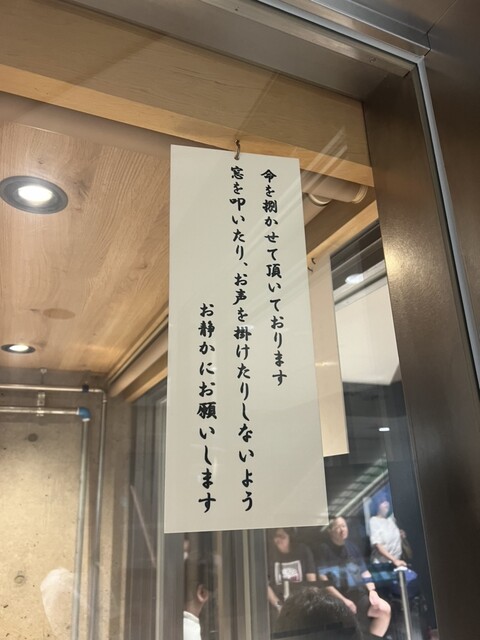 命を捌かせて頂いております
窓を叩いたり、お声を掛けたりしないよう
お静かにお願いします